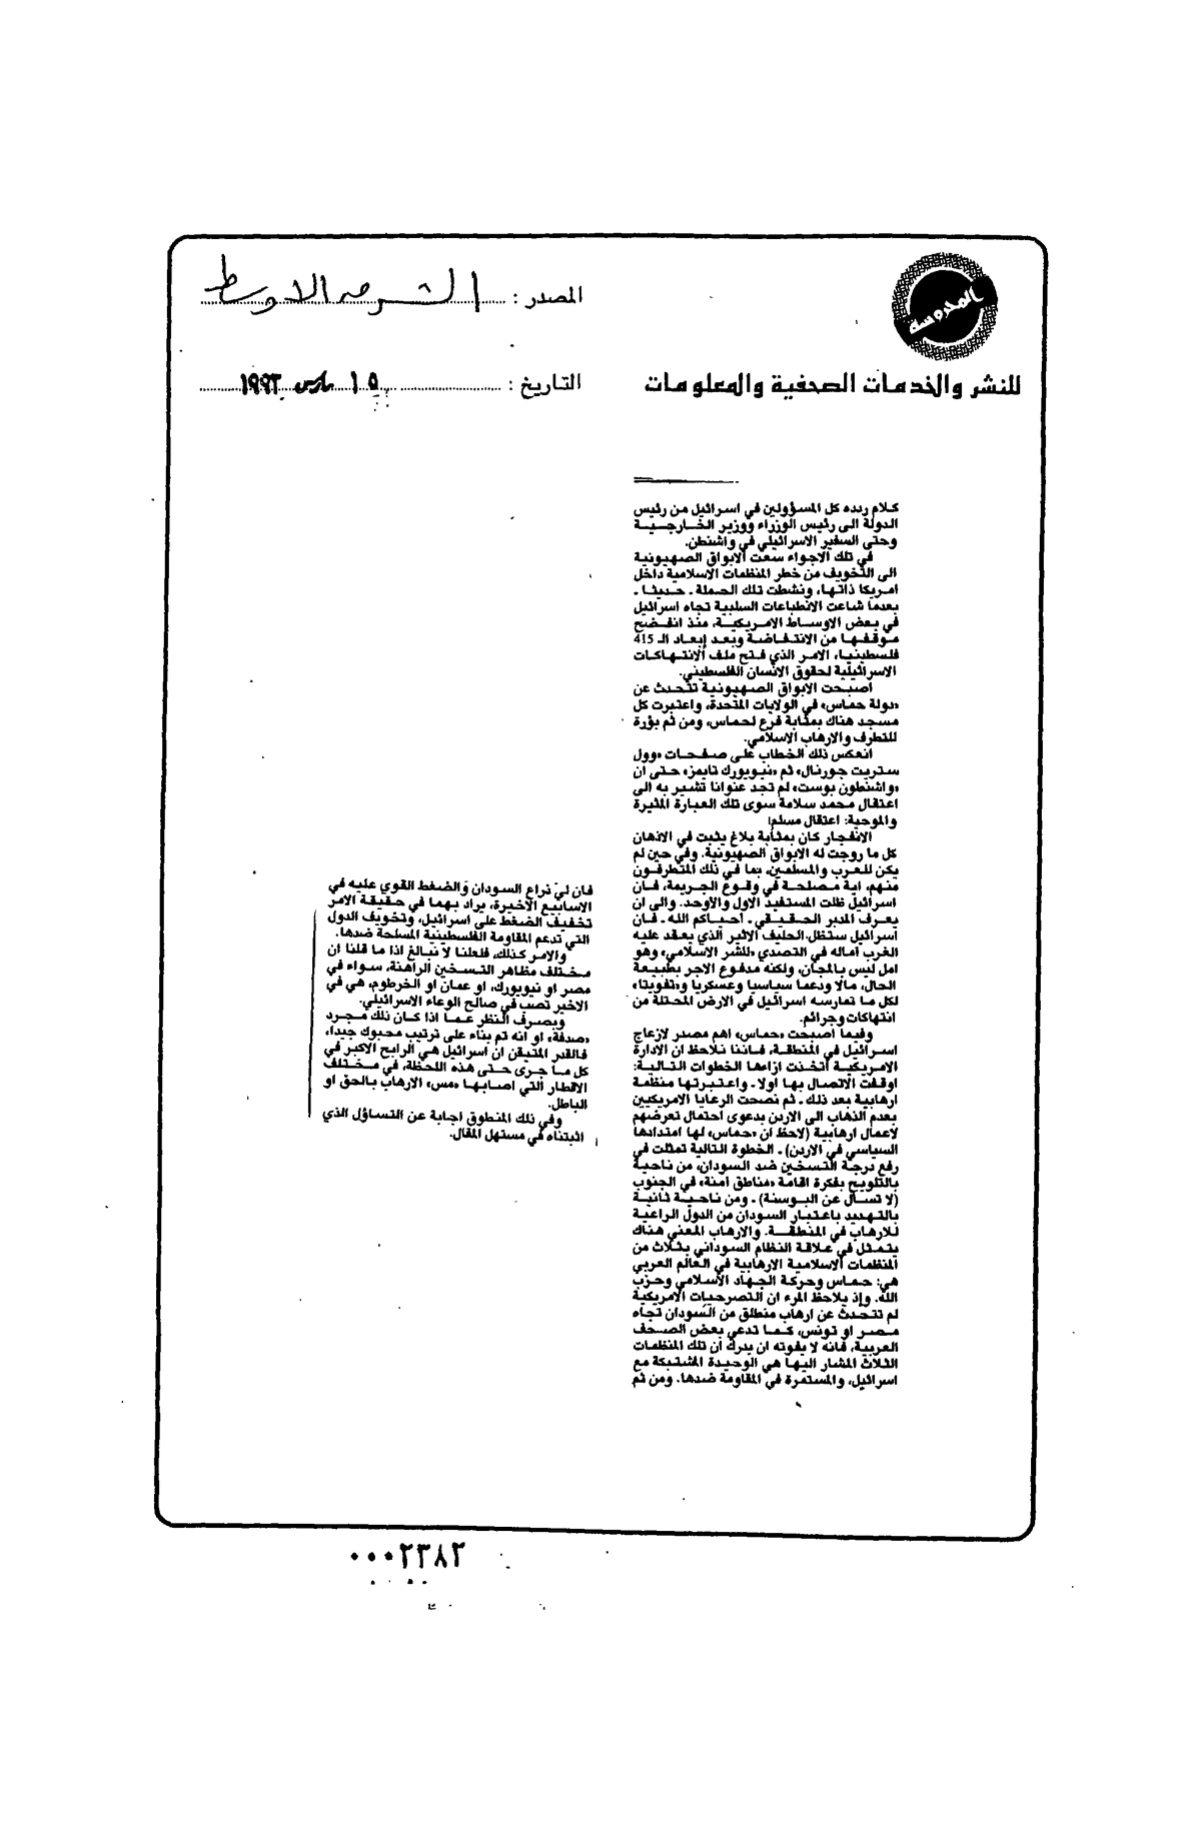 المحروسة
للنشر والخدمات الصحفية والمعلومات
المصدر : الشرق الاوسط
التاريخ : ١٥ مارس ١٩٩٣
كلام ردده كل المسؤولين في اسرائيل من رئيس
الدولة الى رئيس الوزراء ووزير الخارجية
وحتى السفير الاسرائيلي في واشنطن.
في تلك الاجواء سعت الابواق الصهيونية
الى التخويف من خطر المنظمات الاسلامية داخل
امريكا ذاتها، ونشطت تلك الحملة ـ حديثا ـ
بعدما شاعت الانطباعات السلبية تجاه اسرائيل
في بعض الاوساط الامريكية، منذ انفضح
موقفها من الانتفاضة وبعد إبعاد الـ 415
فلسطينيا، الامر الذي فتح ملف الانتهاكات
الاسرائيلية لحقوق الانسان الفلسطيني.
اصبحت الابواق الصهيونية تتحدث عن
«دولة حماس» في الولايات المتحدة، واعتبرت كل
مسجد هناك بمثابة فرع لحماس، ومن ثم بؤرة
للتطرف والارهاب الاسلامي.
انعكس ذلك الخطاب على صفحات «وول
ستريت جورنال» ثم «نيويورك تايمز» حتى ان
«واشنطون بوست» لم تجد عنوانا تشير به الى
اعتقال محمد سلامة سوى تلك العبارة المثيرة
والموحية: اعتقال مسلم!
الانفجار كان بمثابة بلاغ يثبت في الاذهان
كل ما روجت له الابواق الصهيونية. وفي حين لم
يكن للعرب والمسلمين، بما في ذلك المتطرفون
منهم، اية مصلحة في وقوع الجريمة، فان
اسرائيل ظلت المستفيد الاول والاوحد. والى ان
يعرف المدبر الحقيقي ـ احياكم الله ـ فان
اسرائيل ستظل الحليف الاثير الذي يعقد عليه
الغرب آماله في التصدي «للشر الاسلامي» وهو
امل ليس بالمجان، ولكنه مدفوع الاجر بطبيعة
الحال، مالا ودعما سياسيا وعسكريا و«تفويتا»
لكل ما تمارسه اسرائيل في الارض المحتلة من
انتهاكات وجرائم.
وفيما اصبحت «حماس» اهم مصدر لازعاج
اسرائيل في المنطقة، فاننا نلاحظ ان الادارة
الامريكية اتخذت ازاءها الخطوات التالية:
اوقفت الاتصال بها اولا ـ واعتبرتها منظمة
ارهابية بعد ذلك ـ ثم نصحت الرعايا الامريكيين
بعدم الذهاب الى الاردن بدعوى احتمال تعرضهم
لاعمال ارهابية (لاحظ ان «حماس» لها امتدادها
السياسي في الاردن) ـ الخطوة التالية تمثلت في
رفع درجة التسخين ضد السودان، من ناحية
بالتلويح بفكرة اقامة «مناطق آمنة» في الجنوب
(لا تسأل عن البوسنة) ـ ومن ناحية ثانية
بالتهديد باعتبار السودان من الدول الراعية
للارهاب في المنطقة. والارهاب المعني هناك
يتمثل في علاقة النظام السوداني بثلاث من
المنظمات الاسلامية الارهابية في العالم العربي
هي: حماس وحركة الجهاد الاسلامي وحزب
الله. وإذ يلاحظ المرء ان التصرحيات الامريكية
لم تتحدث عن ارهاب منطلق من السودان تجاه
مصر او تونس، كما تدعي بعض الصحف
العربية، فانه لا يفوته ان يدرك ان تلك المنظمات
الثلاث المشار اليها هي الوحيدة المشتبكة مع
اسرائيل، والمستمرة في المقاومة ضدها. ومن ثم
فان ليّ ذراع السودان والضغط القوي عليه في
الاسابيع الاخيرة، يراد بهما في حقيقة الامر
تخفيف الضغط على اسرائيل، وتخويف الدول
التي تدعم المقاومة الفلسطينية المسلحة ضدها.
والامر كذلك، فلعلنا لا نبالغ اذا ما قلنا ان
مختلف مظاهر التسخين الراهنة، سواء في
مصر او نيويورك، او عمان او الخرطوم، هي في
الاخير تصب في صالح الوعاء الاسرائيلي.
وبصرف النظر عما اذا كان ذلك مجرد
«صدفة» او انه تم بناء على ترتيب محبوك جيدا،
فالقدر المتيقن ان اسرائيل هي الرابح الاكبر في
كل ما جرى حتى هذه اللحظة، في مختلف
الاقطار التي اصابها «مس» الارهاب بالحق او
الباطل.
وفي ذلك المنطوق اجابة عن التساؤل الذي
اثبتناه في مستهل المقال.
٠٠٠٢٣٨٢